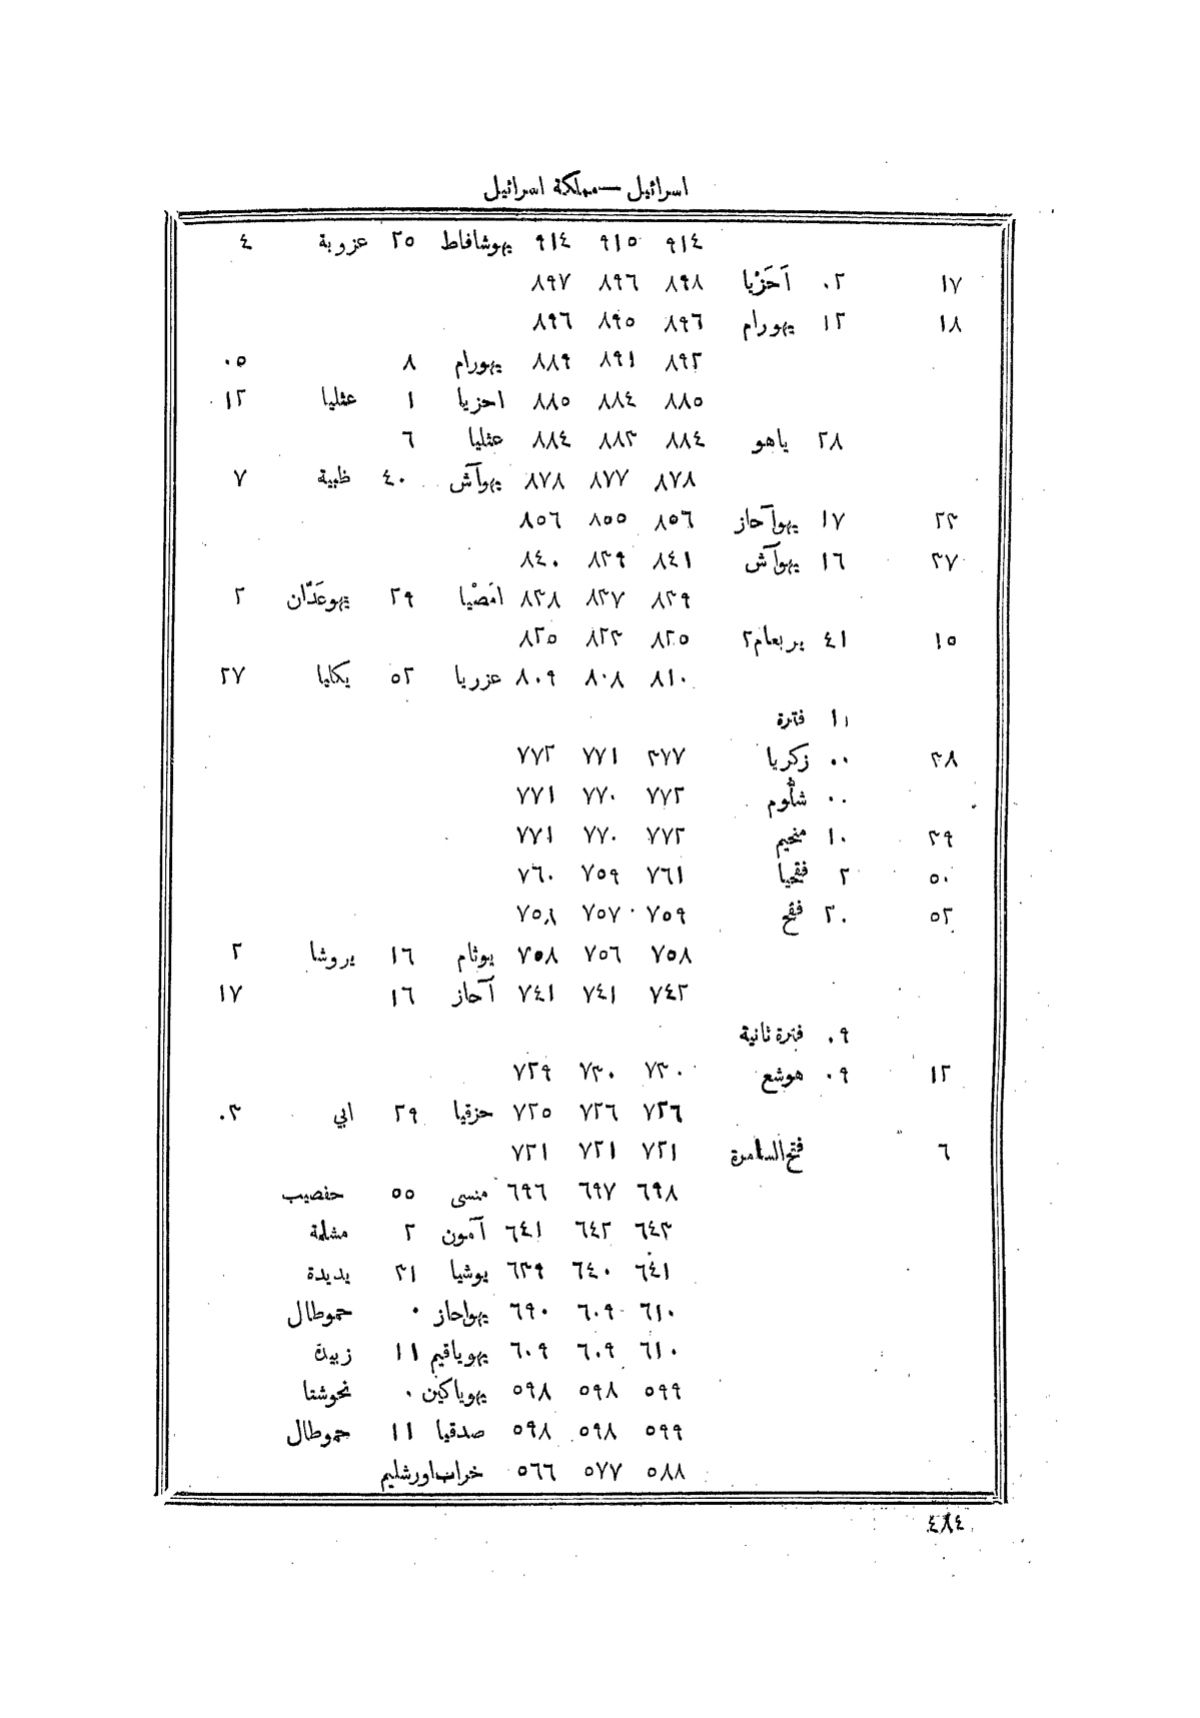 اسرائيل — مملكة اسرائيل
٩١٤ ٩١٥ ٩١٤ يهوشافاط ٢٥ عزوبة ٤
١٧ ٠٢ اَحَزْيا ٨٩٨ ٨٩٦ ٨٩٧
١٨ ١٢ يهورام ٨٩٦ ٨٩٥ ٨٩٦
٨٩٢ ٨٩١ ٨٨٩ يهورام ٨ ٠٥
٨٨٥ ٨٨٤ ٨٨٥ احزيا ١ عثليا ١٢
٢٨ ياهو ٨٨٤ ٨٨٣ ٨٨٤ عثليا ٦
٨٧٨ ٨٧٧ ٨٧٨ يهوآش ٤٠ ظبية ٧
٢٣ ١٧ يهوآحاز ٨٥٦ ٨٥٥ ٨٥٦
٣٧ ١٦ يهوآش ٨٤١ ٨٣٩ ٨٤٠
٨٣٩ ٨٣٧ ٨٣٨ امَصْيا ٢٩ يهوعَدّان ٢
١٥ ٤١ يربعام٢ ٨٢٥ ٨٢٣ ٨٢٥
٨١٠ ٨٠٨ ٨٠٩ عزريا ٥٢ يكليا ٢٧
١١ فترة
٣٨ ٠٠ زكريا ٣٧٧ ٧٧١ ٧٧٢
٠٠ شلُّوم ٧٧٢ ٧٧٠ ٧٧١
٣٩ ١٠ منحيم ٧٧٢ ٧٧٠ ٧٧١
٥٠ ٢ فقحيا ٧٦١ ٧٥٩ ٧٦٠
٥٢ ٢٠ فقح ٧٥٩ ٧٥٧ ٧٥٨
٧٥٨ ٧٥٦ ٧٥٨ يوثام ١٦ يروشا ٢
٧٤٢ ٧٤١ ٧٤١ آحاز ١٦ ١٧
٠٩ فترة ثانية
١٢ ٠٩ هوشع ٧٣٠ ٧٣٠ ٧٢٩
٧٢٦ ٧٢٦ ٧٢٥ حزقيا ٢٩ ابي ٠٣
٦ فتح السامرة ٧٢١ ٧٢١ ٧٢١
٦٩٨ ٦٩٧ ٦٩٦ منسى ٥٥ حفصيب
٦٤٣ ٦٤٢ ٦٤١ آمون ٢ مشلمة
٦٤١ ٦٤٠ ٦٣٩ يوشيا ٣١ يديدة
٦١٠ ٦٠٩ ٦٩٠ يهواحاز ٠ حموطال
٦١٠ ٦٠٩ ٦٠٩ يهوياقيم ١١ زبيدة
٥٩٩ ٥٩٨ ٥٩٨ يهوياكين ٠ نحوشتا
٥٩٩ ٥٩٨ ٥٩٨ صدقيا ١١ حموطال
٥٨٨ ٥٧٧ ٥٦٦ خراب اورشليم
٤٨٤